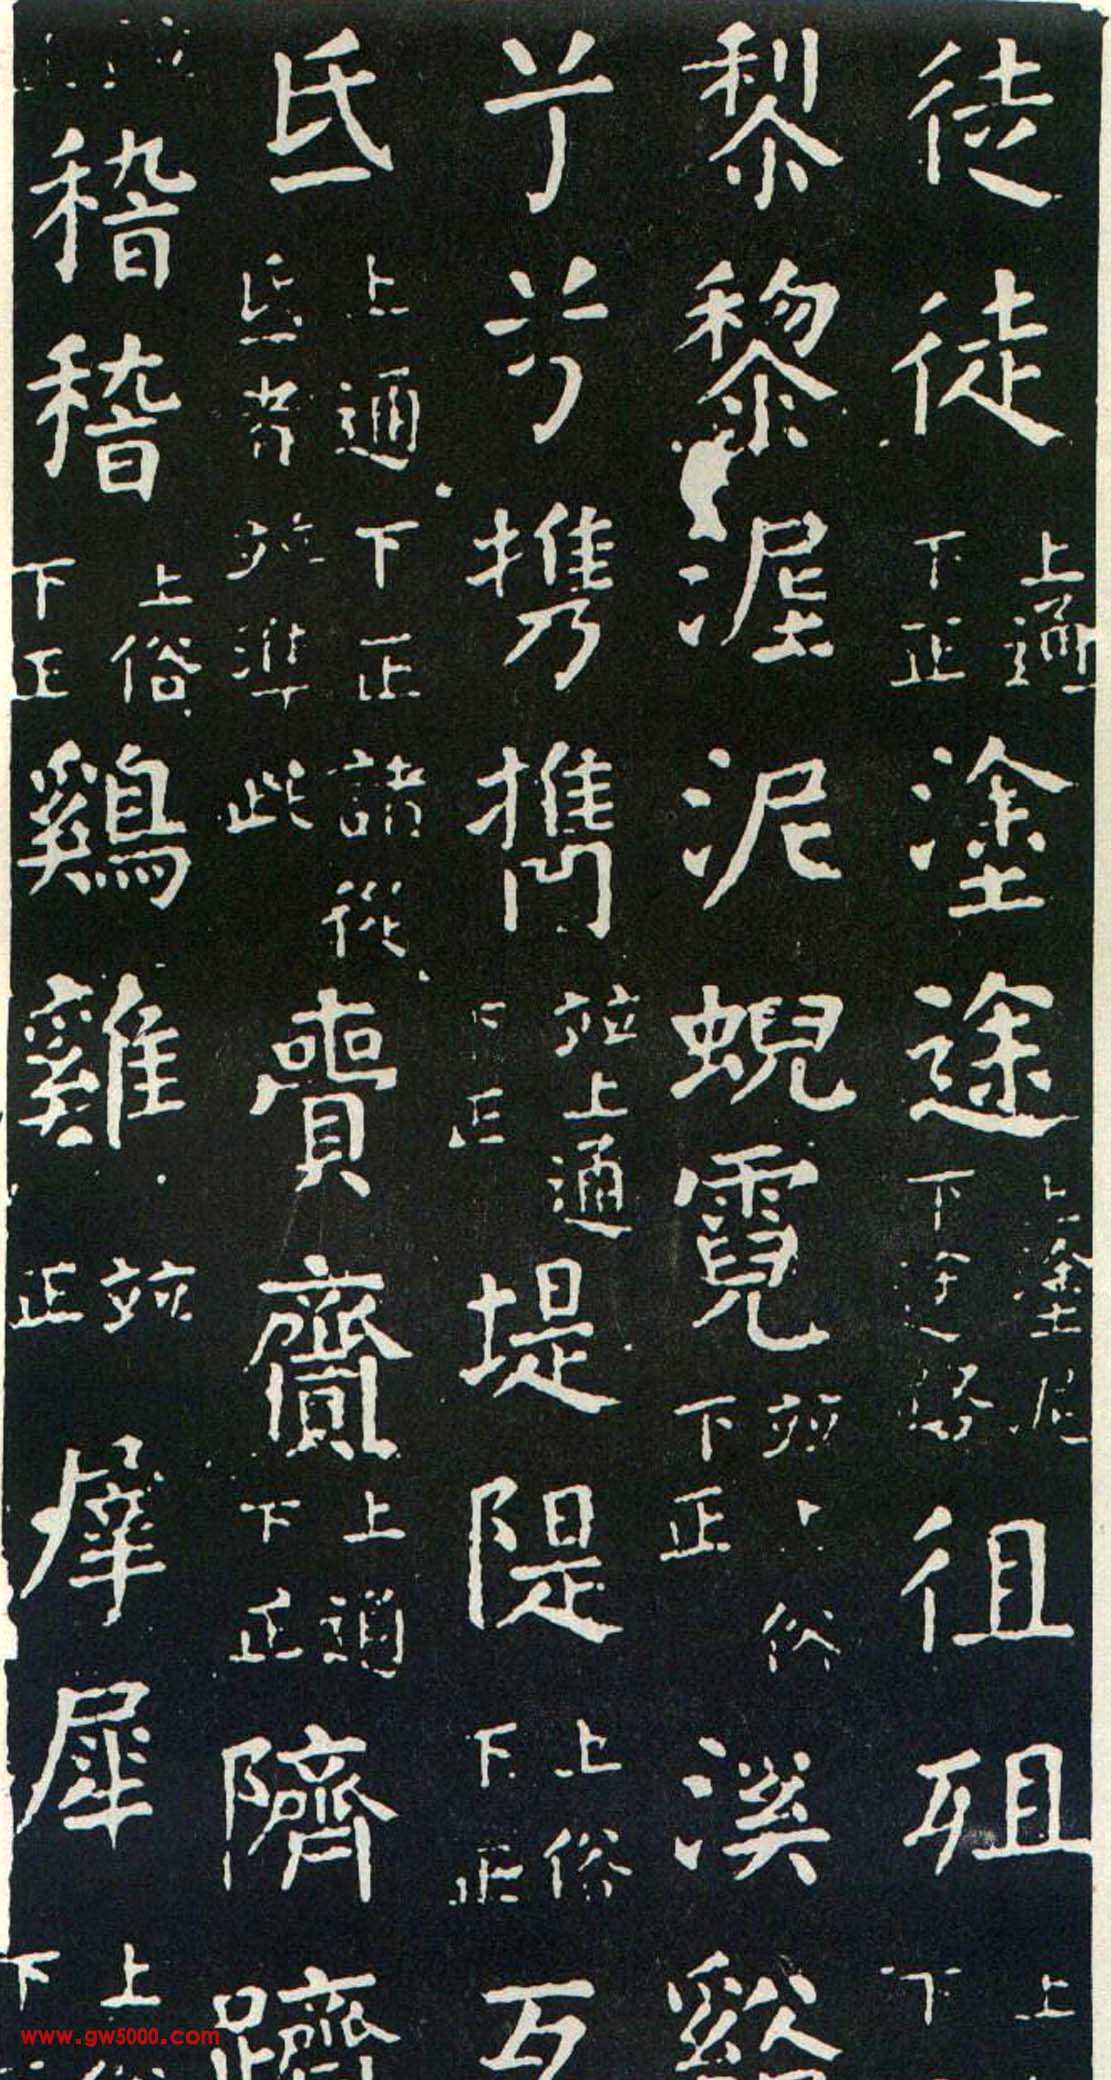 徒徒上通下正塗途上塗泥下途路徂殂上下
黎黎埿泥蜺霓並上俗下正溪谿
兮兮携㩦並上通下正堤隄上俗下正互
氐上通下正諸從氐者並準此賷齎上通下正隮躋
稽稽上俗下正鷄雞並正犀犀上俗下
www.gw5000.com